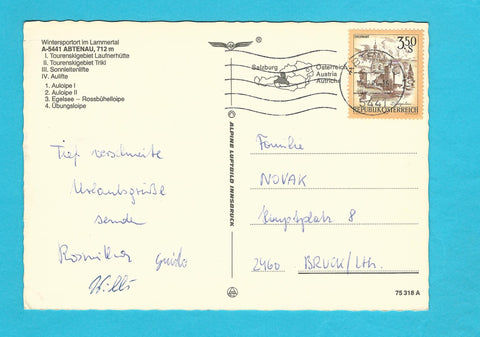 Wintersportort im Lammertal
A-5441 ABTENAU, 712 m
I. Tourenskigebiet Laufnerhütte
II. Tourenskigebiet Trikl
III. Sonnleitenlifte
IV. Aulifte
1. Auloipe I
2. Auloipe II
3. Egelsee - Rossbühelloipe
4. Übungsloipe
Tief verschneite
Urlaubsgrüße
senden
Guido
Willi
®
ALPINE LUFTBILD INNSBRUCK
Salzburg
Österreich
Austria
Autriche
ABTENAU
5441
3.50
S
REPUBLIK ÖSTERREICH
Familie
NOVAK
Hauptplatz 8
2460 BRUCK/Lth.
75 318 A